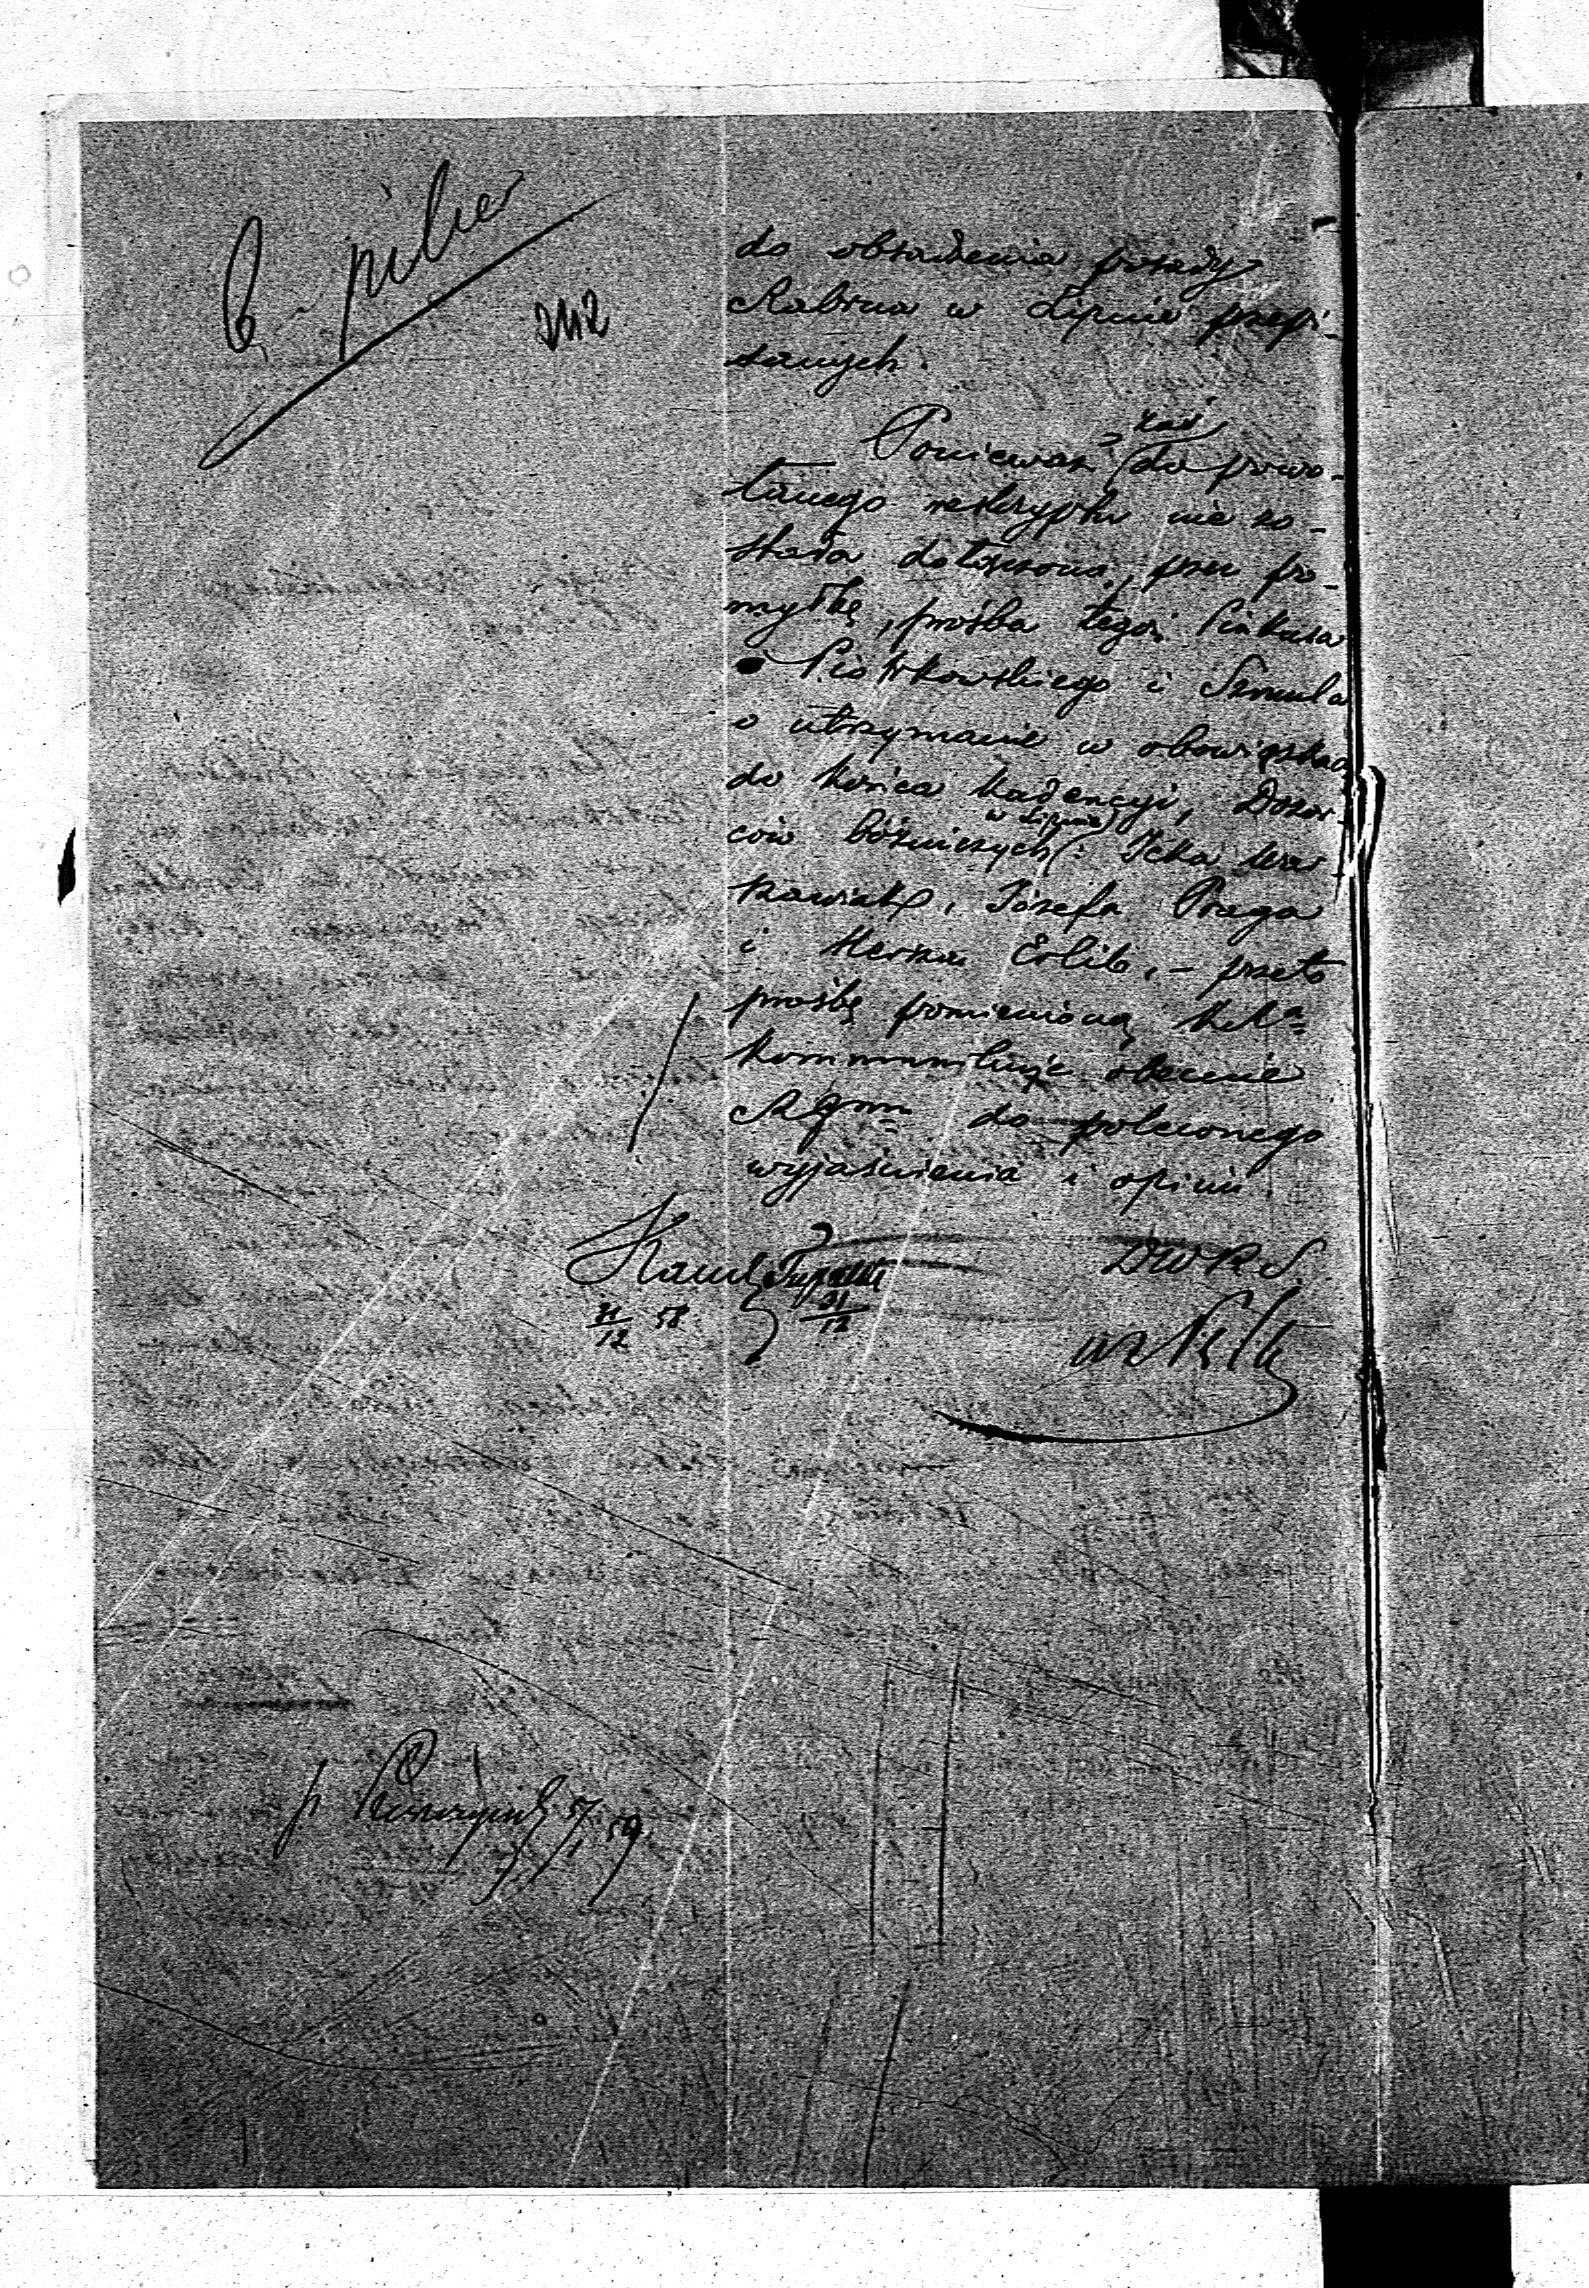 pilno
242
do obsadzenia posady
Rabina w Lipnie przepi-
sanych.
zaś
Ponieważ do powo-
łanego reskryptu nie zo-
stała dołączona, przez po-
myłkę, prośba tegoż Pinkusa
Piotrkowskiego i Szmula
o utrzymanie w obowiązkach
do końca kadencyi, Dozor-
w Lipnie
ców bóżniczych: Icka War-
szawiak, Józefa Praga
i Herszа Erlib, - przeto
prośbę pomienioną
kommunikuje obecnie
do poleconego
wyjaśnienia i opinii.
DWRS.
31/12 58
31/12
59